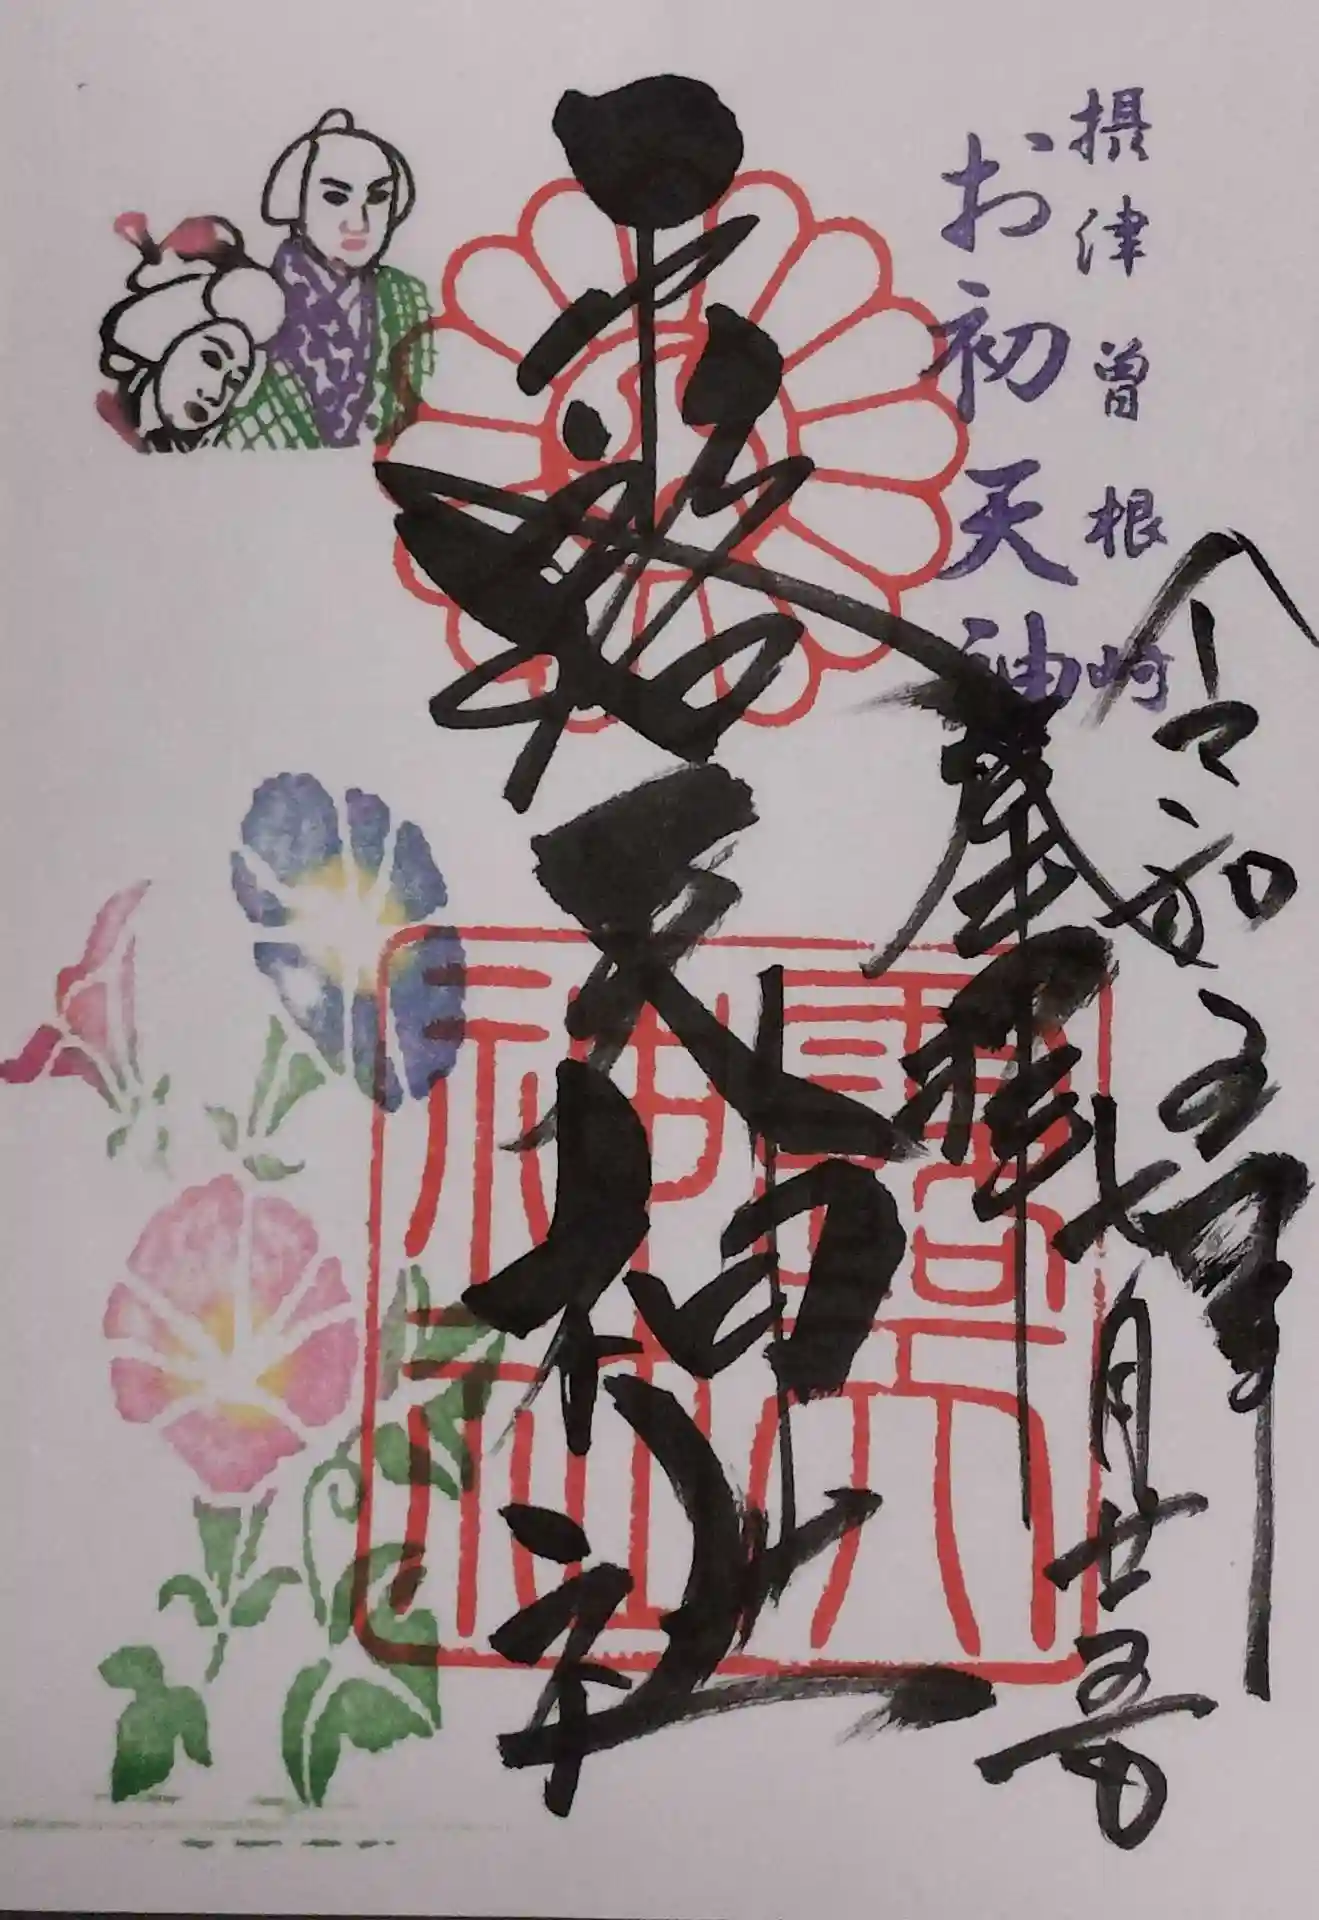 摂津曽根崎
お初天神
令和五年
七月廿五日
奉拝
露天神社
露天神社